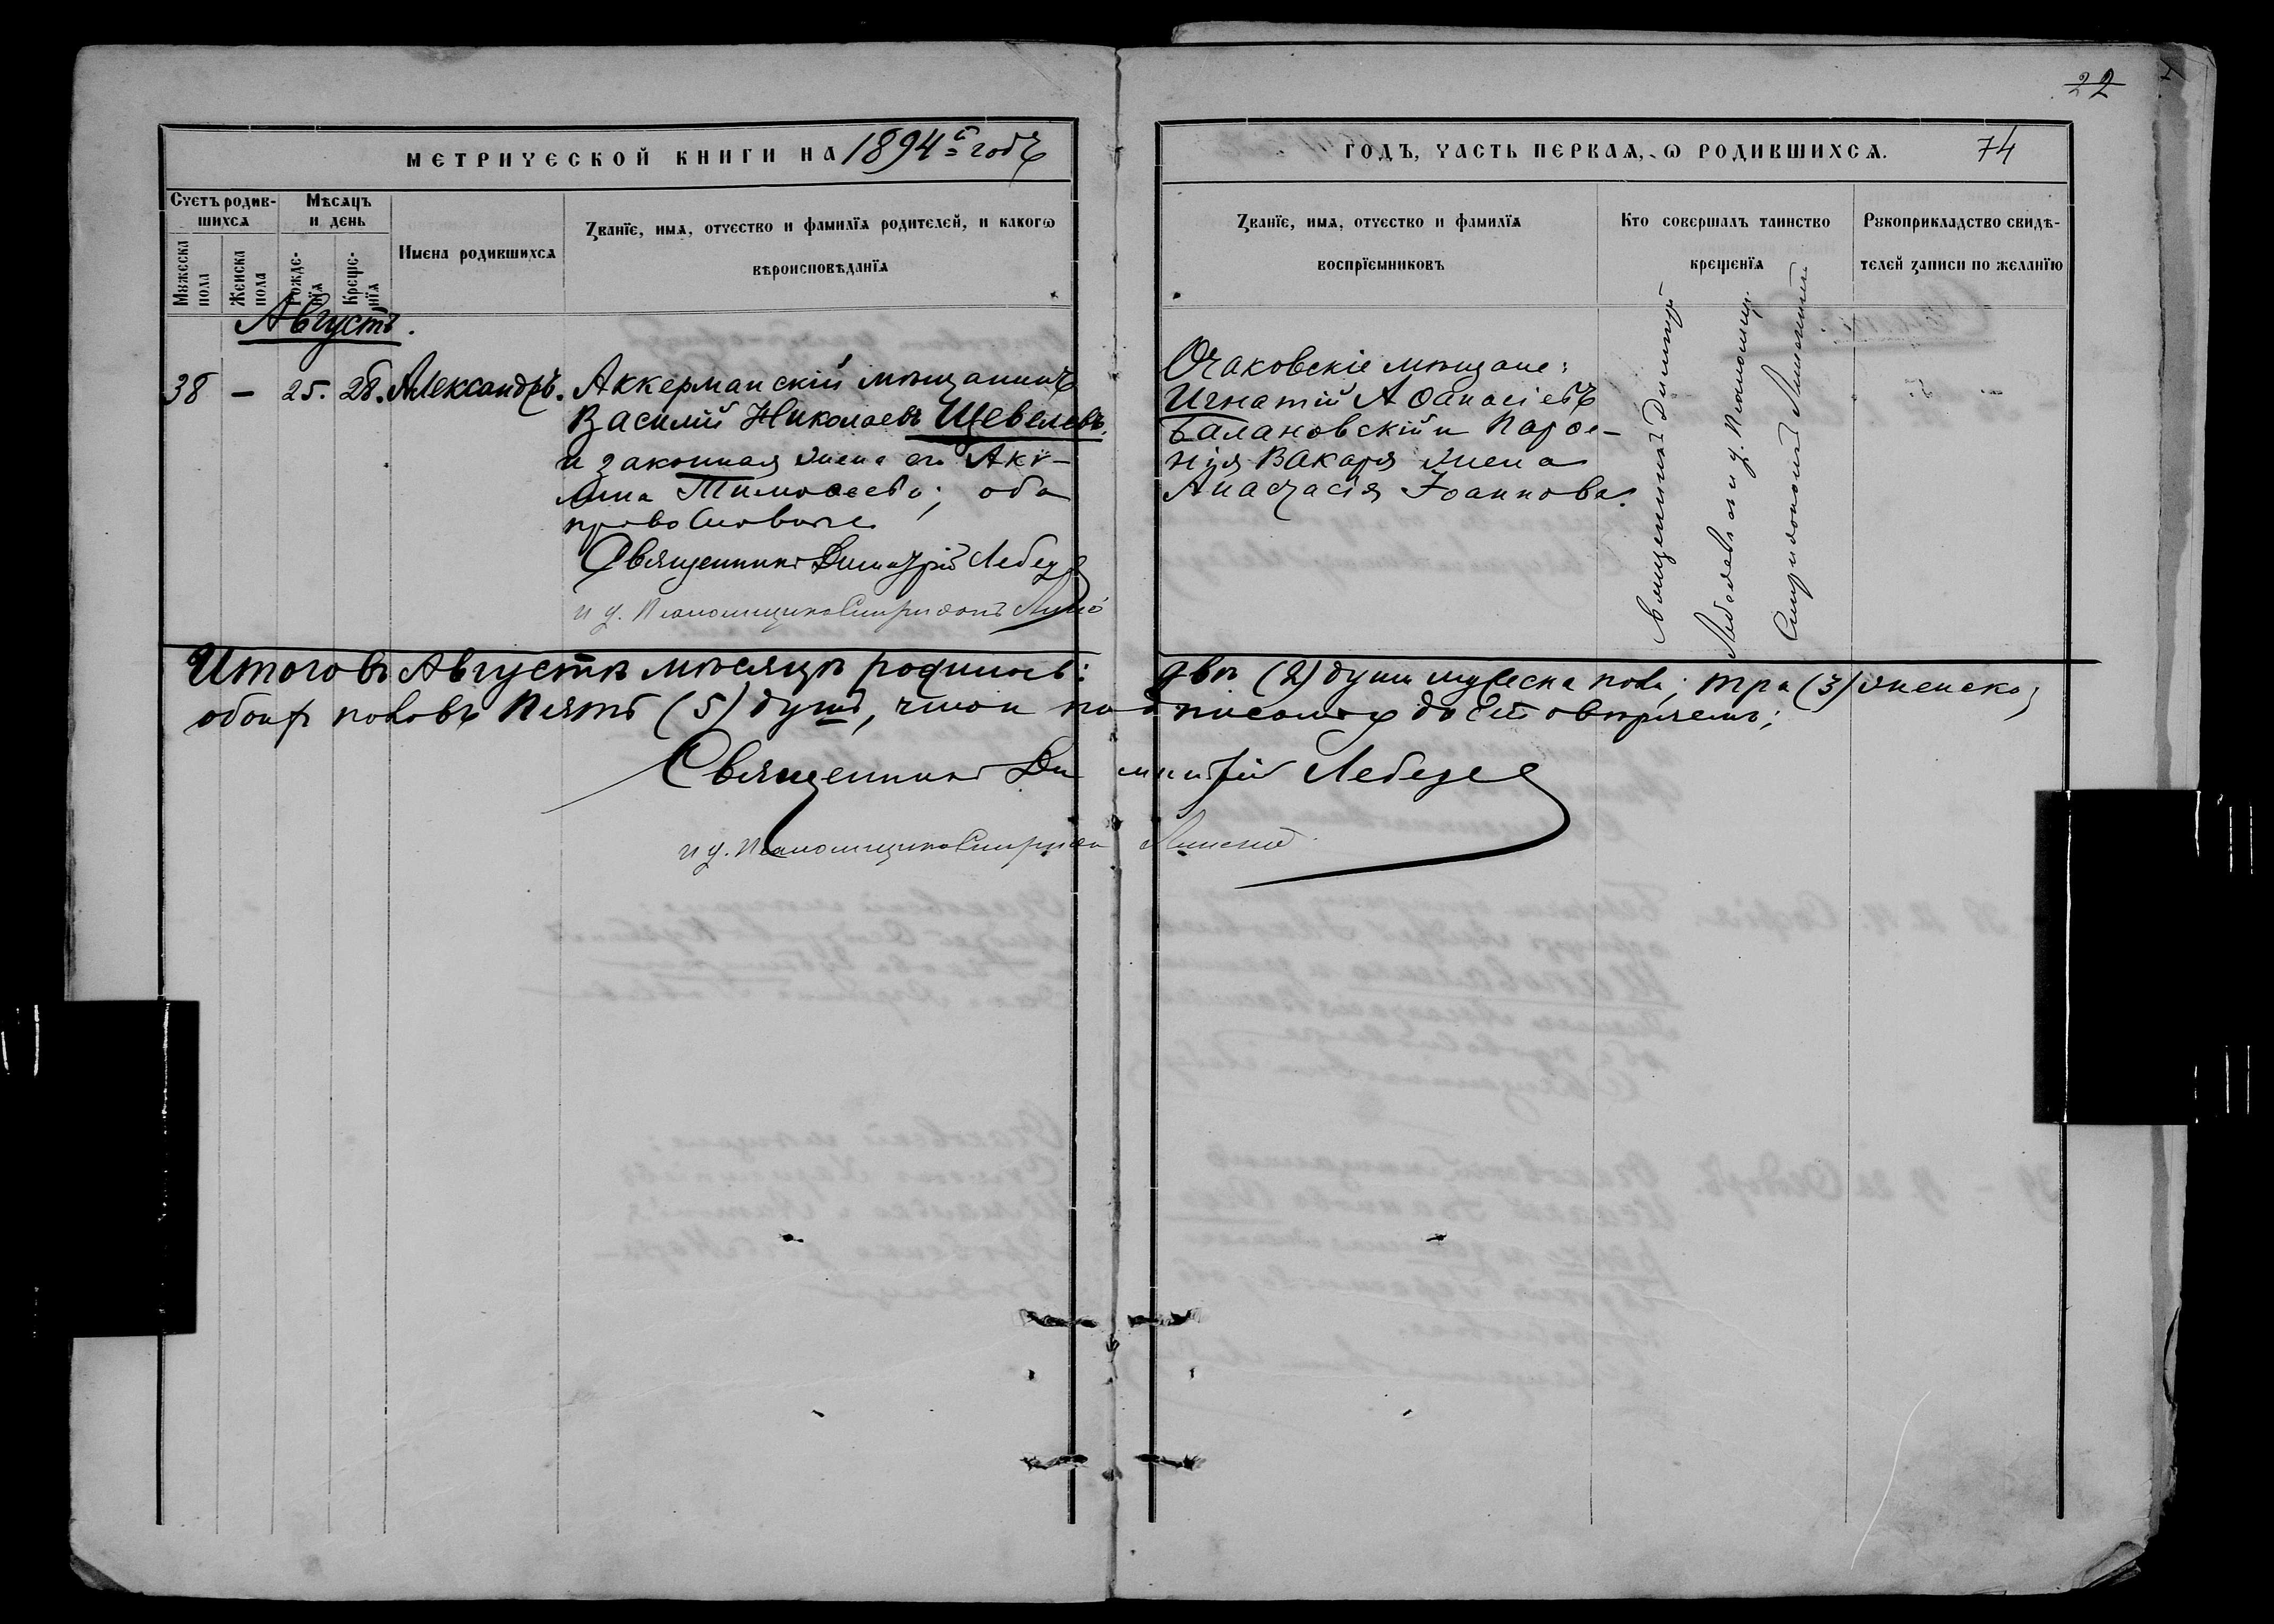 22
МЕТРИЧЕСКОЙ КНИГИ НА 1894й годъ
ГОДЪ, ЧАСТЬ ПЕРВАЯ, Ѡ РОДИВШИХСЯ. 74
Счетъ родив-
шихся
Мѣсяцъ
и день
Имена родившихся
Званіе, имя, отчество и фамилія родителей, и какогѡ
вѣроисповѣданія
Мꙋжеска
пола
Женска
пола
Рожде-
нія
Креще-
нія
Званіе, имя, отчество и фамилія
воспріемниковъ
Кто совершалъ таинство
крещенія
Рꙋкоприкладство свидѣ-
телей записи по желанію
Августъ.
38 – 25. 28. Александръ.
Аккерманскій мѣщанинъ
Василій Николаевъ Щевелевъ
и законная жена его Аку-
лина Тимоѳеева; оба
православные
Священникъ Димитрій Лебедев
и д. Псаломщика Спиридонъ
Очаковскіе мѣщане:
Игнатій Аѳанасіевъ
Балановскій и Парѳе-
нія Вакаря жена
Анастасія Іоаннова.
Священникъ Димитрій
Лебедевъ и и д. Псаломщ.
Спиридонъ
Итого въ Августѣ мѣсяцѣ родилось: двѣ (2) души мужеска пола; три (3) женска,
обоихъ половъ Пять (5) душъ, въ подписомъ
Священникъ Димитрій Лебедев
и д. Псаломщика Спиридон